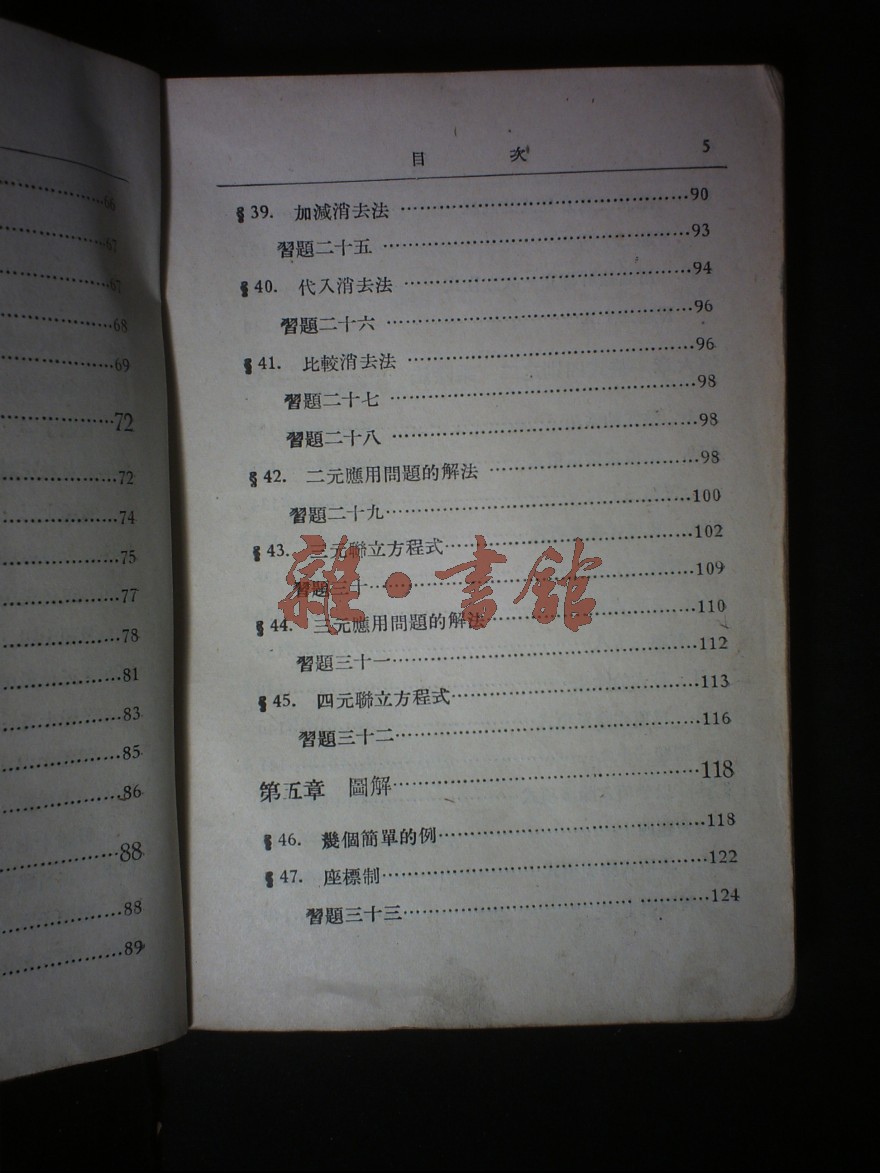 66
67
67
68
69
72
72
74
75
77
78
81
83
85
86
88
88
89
目 次 5
§39. 加減消去法……90
習題二十五……93
§40. 代入消去法……94
習題二十六……96
§41. 比較消去法……96
習題二十七……98
習題二十八……98
§42. 二元應用問題的解法……98
習題二十九……100
§43. 三元聯立方程式……102
習題三十……109
§44. 三元應用問題的解法……110
習題三十一……112
§45. 四元聯立方程式……113
習題三十二……116
第五章 圖解……118
§46. 幾個簡單的例……118
§47. 座標制……122
習題三十三……124
雜·書館